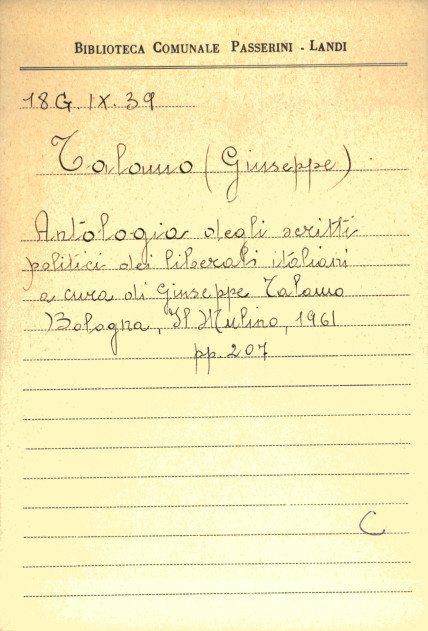 BIBLIOTECA COMUNALE PASSERINI - LANDI
18G. IX. 39
Talamo (Giuseppe)
Antologia degli scritti
politici dei liberali italiani
a cura di Giuseppe Talamo
Bologna, Il Mulino, 1961
pp. 207
C